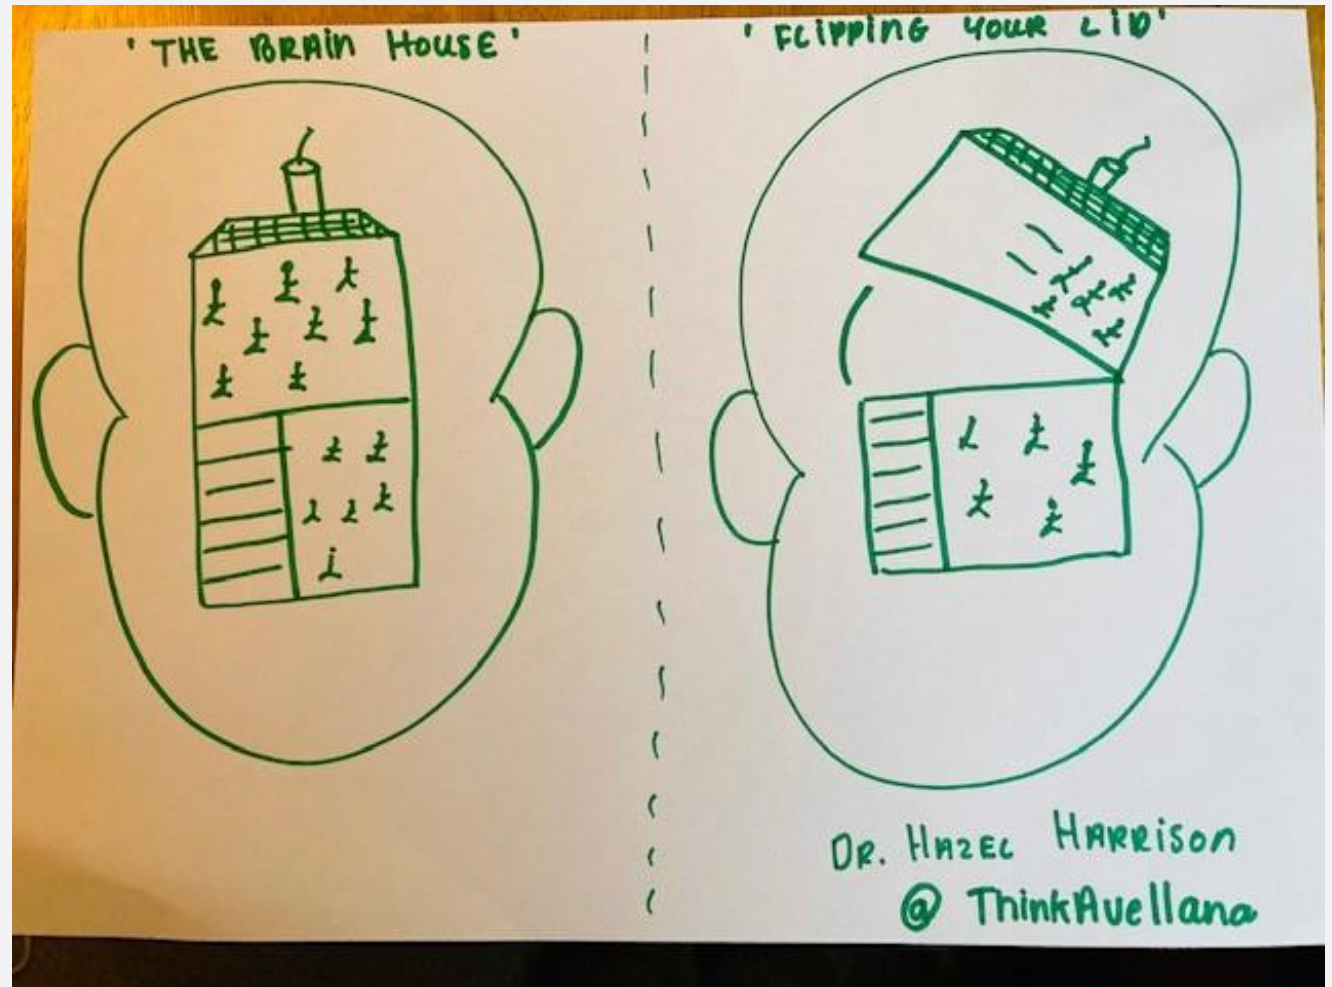 'THE BRAIN HOUSE'
'FLIPPING YOUR LID'
DR. HAZEL HARRISON
@ThinkAvellana